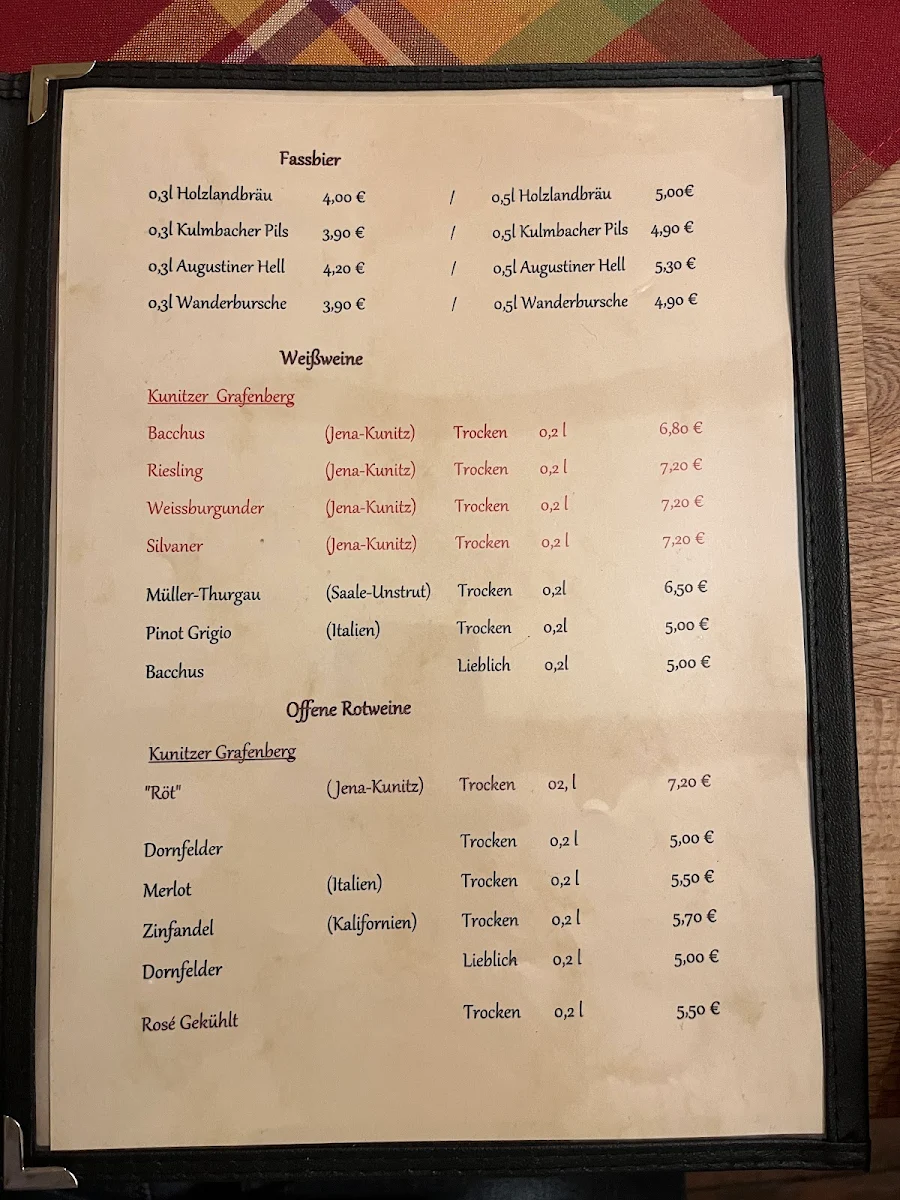 Fassbier
0,3l Holzlandbräu 4,00 € / 0,5l Holzlandbräu 5,00€
0,3l Kulmbacher Pils 3,90 € / 0,5l Kulmbacher Pils 4,90 €
0,3l Augustiner Hell 4,20 € / 0,5l Augustiner Hell 5,30 €
0,3l Wanderbursche 3,90 € / 0,5l Wanderbursche 4,90 €
Weißweine
Kunitzer Grafenberg
Bacchus (Jena-Kunitz) Trocken 0,2 l 6,80 €
Riesling (Jena-Kunitz) Trocken 0,2 l 7,20 €
Weissburgunder (Jena-Kunitz) Trocken 0,2 l 7,20 €
Silvaner (Jena-Kunitz) Trocken 0,2 l 7,20 €
Müller-Thurgau (Saale-Unstrut) Trocken 0,2l 6,50 €
Pinot Grigio (Italien) Trocken 0,2l 5,00 €
Bacchus Lieblich 0,2l 5,00 €
Offene Rotweine
Kunitzer Grafenberg
"Röt" (Jena-Kunitz) Trocken 02, l 7,20 €
Dornfelder Trocken 0,2 l 5,00 €
Merlot (Italien) Trocken 0,2 l 5,50 €
Zinfandel (Kalifornien) Trocken 0,2 l 5,70 €
Dornfelder Lieblich 0,2 l 5,00 €
Rosé Gekühlt Trocken 0,2 l 5,50 €